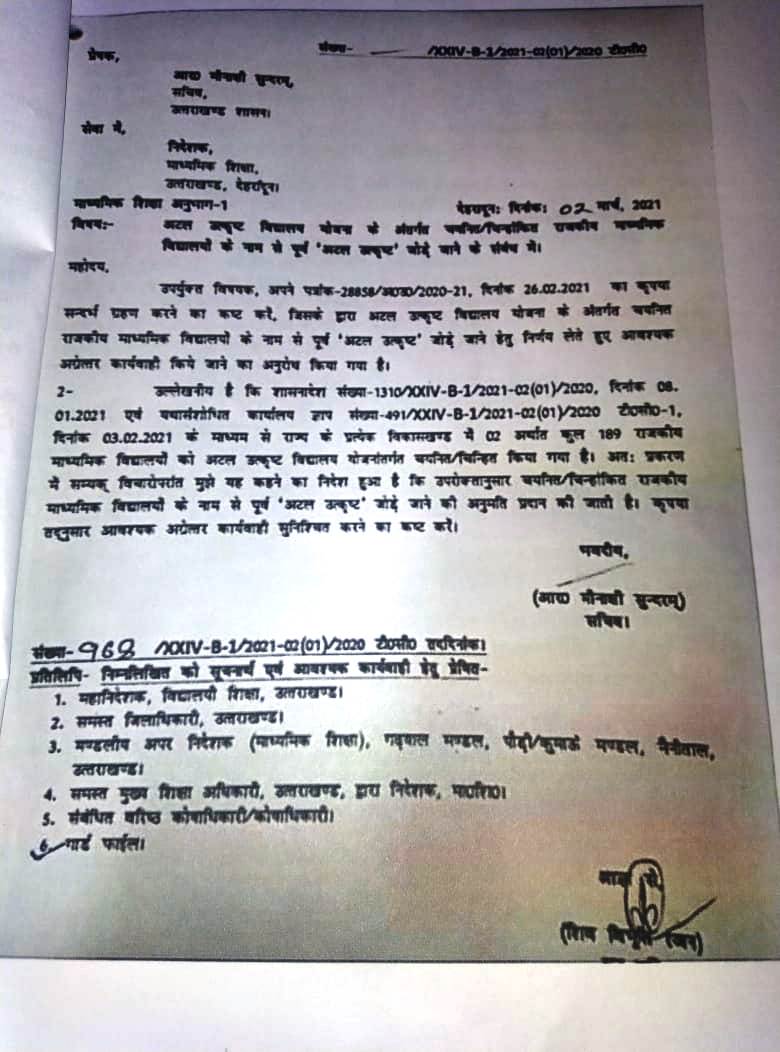 संख्या- /XXIV-B-1/2021-02(01)/2020 टी०सी०
प्रेषक,
आर० मीनाक्षी सुन्दरम्,
सचिव,
उत्तराखण्ड शासन।
सेवा में,
निदेशक,
माध्यमिक शिक्षा,
उत्तराखण्ड, देहरादून।
माध्यमिक शिक्षा अनुभाग-1 देहरादून: दिनांक: 02 मार्च, 2021
विषय:- अटल उत्कृष्ट विद्यालय योजना के अंतर्गत चयनित/चिन्हांकित राजकीय माध्यमिक
विद्यालयों के नाम से पूर्व 'अटल उत्कृष्ट' जोड़े जाने के संबंध में।
महोदय,
उपर्युक्त विषयक, अपने पत्रांक-28858/अ0उ0/2020-21, दिनांक 26.02.2021 का कृपया
सन्दर्भ ग्रहण करने का कष्ट करें, जिसके द्वारा अटल उत्कृष्ट विद्यालय योजना के अंतर्गत चयनित
राजकीय माध्यमिक विद्यालयों के नाम से पूर्व 'अटल उत्कृष्ट' जोड़े जाने हेतु निर्णय लेते हुए आवश्यक
अग्रेत्तर कार्यवाही किये जाने का अनुरोध किया गया है।
2- उल्लेखनीय है कि शासनादेश संख्या-1310/XXIV-B-1/2021-02(01)/2020, दिनांक 08.
01.2021 एवं यथासंशोधित कार्यालय ज्ञाप संख्या-491/XXIV-B-1/2021-02(01)/2020 टी०सी०-1,
दिनांक 03.02.2021 के माध्यम से राज्य के प्रत्येक विकासखण्ड में 02 अर्थात कुल 189 राजकीय
माध्यमिक विद्यालयों को अटल उत्कृष्ट विद्यालय योजनांतर्गत चयनित/चिन्हित किया गया है। अत: प्रकरण
में सम्यक् विचारोपरांत मुझे यह कहने का निदेश हुआ है कि उपरोक्तानुसार चयनित/चिन्हांकित राजकीय
माध्यमिक विद्यालयों के नाम से पूर्व 'अटल उत्कृष्ट' जोड़े जाने की अनुमति प्रदान की जाती है। कृपया
तद्नुसार आवश्यक अग्रेत्तर कार्यवाही सुनिश्चित करने का कष्ट करें।
भवदीय,
(आर० मीनाक्षी सुन्दरम्)
सचिव।
संख्या-968 /XXIV-B-1/2021-02(01)/2020 टी०सी० तददिनांक।
प्रतिलिपि- निम्नलिखित को सूचनार्थ एवं आवश्यक कार्यवाही हेतु प्रेषित-
1. महानिदेशक, विद्यालयी शिक्षा, उत्तराखण्ड।
2. समस्त जिलाधिकारी, उत्तराखण्ड।
3. मण्डलीय अपर निदेशक (माध्यमिक शिक्षा), गढ़वाल मण्डल, पौड़ी/कुमाऊं मण्डल, नैनीताल,
उत्तराखण्ड।
4. समस्त मुख्य शिक्षा अधिकारी, उत्तराखण्ड, द्वारा निदेशक, मा०शि०।
5. संबंधित वरिष्ठ कोषाधिकारी/कोषाधिकारी।
6. गार्ड फाईल।
आज्ञा से,
(शिव विभूति रंजन)